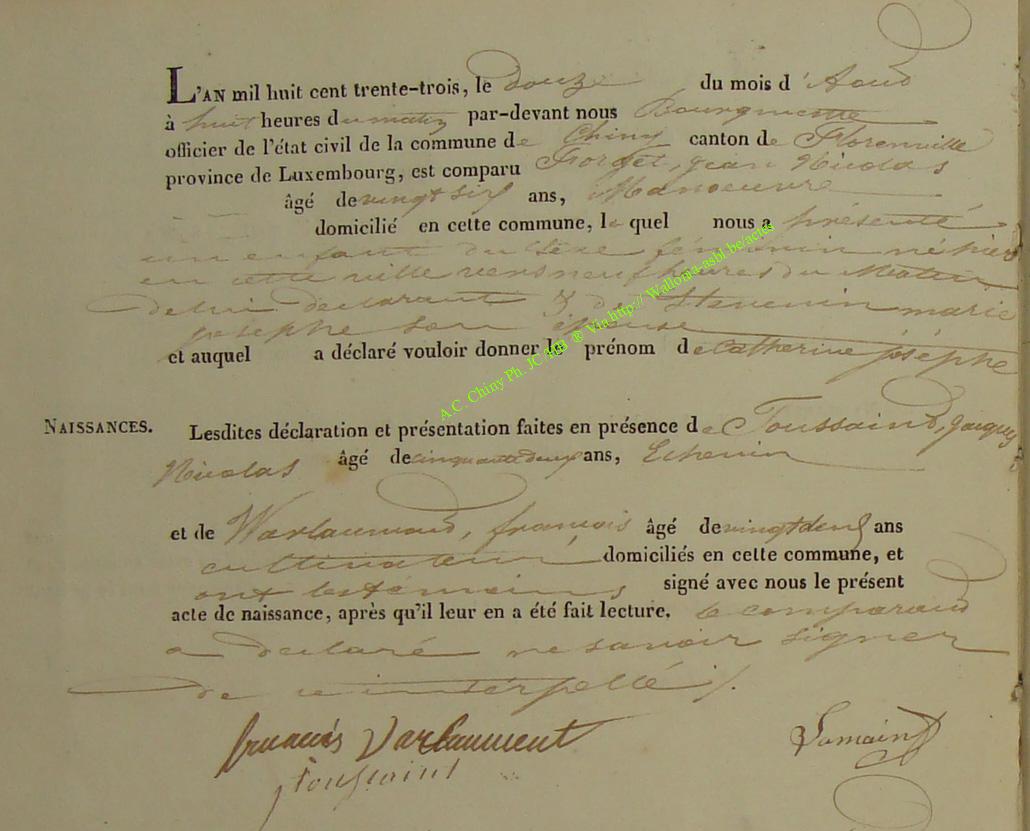 L'AN mil huit cent trente-trois, le douze du mois d'Aoud
à huit heures du matin par-devant nous Bourgmestre
officier de l'état civil de la commune de Chiny canton de Florenville
province de Luxembourg, est comparu Forget, jean Nicolas
âgé de vingt six ans, Manoeuvre
domicilié en cette commune, le quel nous a présenté
un enfant du sexe féminin né hier
en cette ville vers neuf heures du Matin
de lui declarant & de Stevenin marie
josephe son épouse
et auquel a déclaré vouloir donner le prénom de Catherine josèphe
NAISSANCES. Lesdites déclaration et présentation faites en présence de Toussaind, jacques
Nicolas âgé de cinquante deux ans, Echevin
et de Warlaumond, francois âgé de vingt deux ans
cultivateur domiciliés en cette commune, et
ont les témoins signé avec nous le présent
acte de naissance, après qu'il leur en a été fait lecture. le comparand
a declaré ne savoir signer
de ce interpellé /.
francois Varlaumont
Toussaint
A.C. Chiny Ph. JC ® Via http:// Wallonia-asbl.be/actes